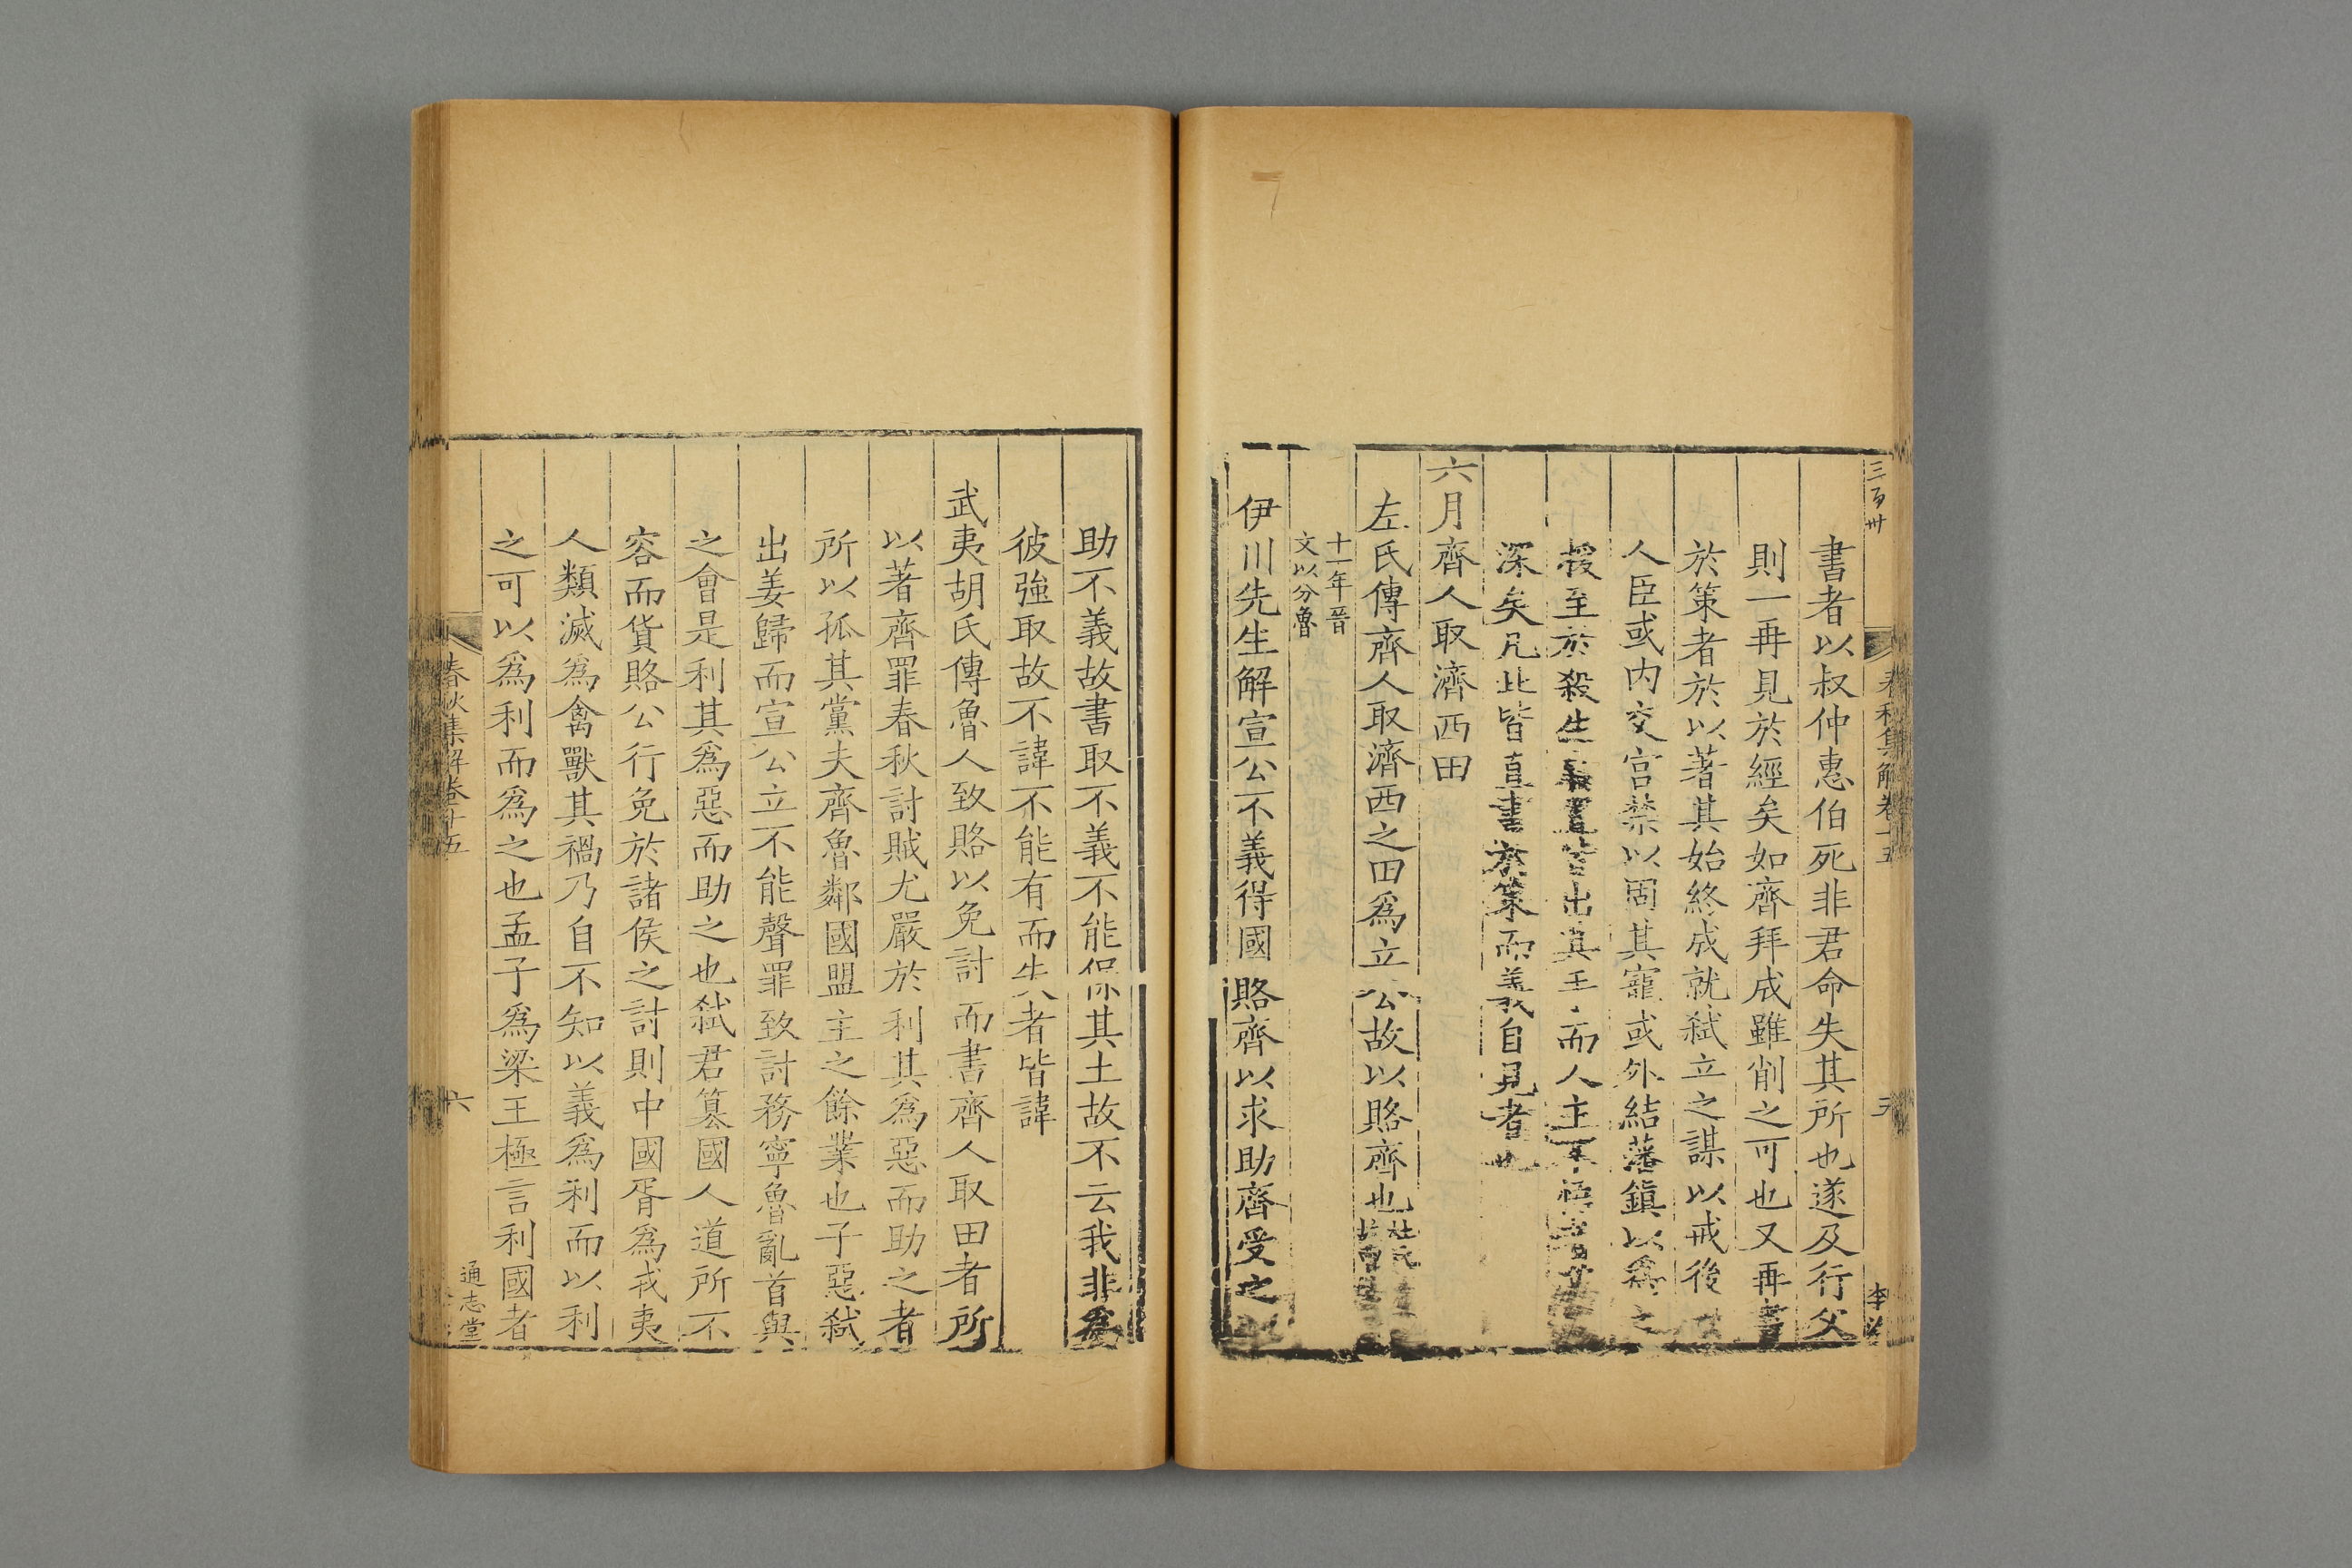 三百卅
春秋集解卷十五
五
李
書者以叔仲惠伯死非君命失其所也遂及行父
則一再見於經矣如齊拜成雖削之可也又再書
於策者於以著其始終成就弒立之謀以戒後
人臣或内交宮禁以固其寵或外結藩鎮以爲之
援至於殺生出其而人主不
深矣凡此皆直書於策而義自見者也
六月齊人取濟西田
左氏傳齊人取濟西之田爲立公故以賂齊也杜氏
十一年晉
文以分魯
伊川先生解宣公不義得國賂齊以求助齊受之
助不義故書取不義不能保其土故不云我非爲
彼強取故不諱不能有而失者皆諱
武夷胡氏傳魯人致賂以免討而書齊人取田者所
以著齊罪春秋討賊尤嚴於利其爲惡而助之者
所以孤其黨夫齊魯鄰國盟主之餘業也子惡弒
出姜歸而宣公立不能聲罪致討務寧魯亂首與
之會是利其爲惡而助之也弒君篡國人道所不
容而貨賂公行免於諸侯之討則中國胥爲戎夷
人類滅爲禽獸其禍乃自不知以義爲利而以利
之可以爲利而爲之也孟子爲梁王極言利國者
春秋集解卷十五
六
通志堂